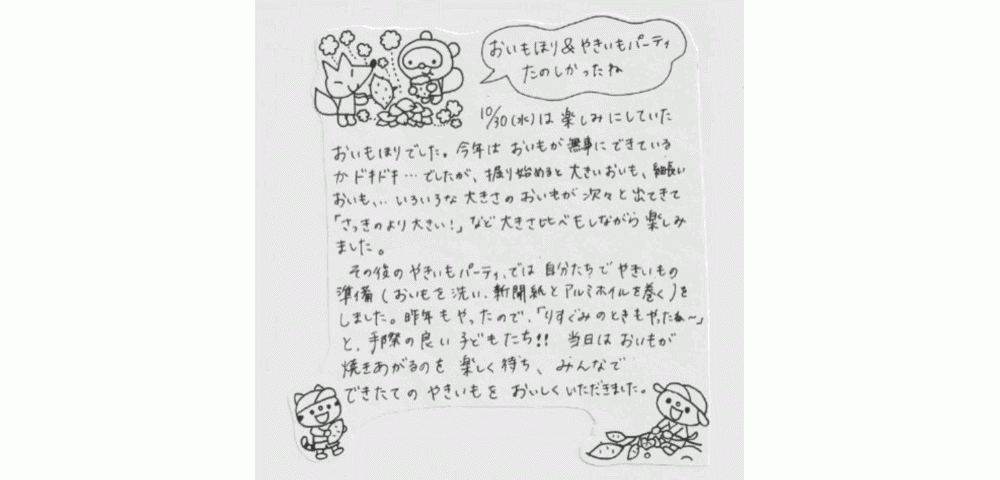 おいもほり&やきいもパーティ
たのしかったね
10/30(水)は楽しみにしていた
おいもほりでした。今年はおいもが無事にできている
かドキドキ…でしたが、掘り始めると大きいおいも、細長い
おいも、..いろいろな大きさのおいもが次々と出てきて
「さっきのより大きい!」など大きさ比べもしながら楽しみ
ました。
その後のやきいもパーティ、では自分たちでやきいもの
準備(おいもを洗い、新聞紙とアルミホイルを巻く)を
しました。昨年もやったので、「りすぐみのときもやったね〜」
と、手際の良い子どもたち!!当日はおいもが
焼きあがるのを楽しく待ち、みんなで
できたてのやきいもをおいしくいただきました。